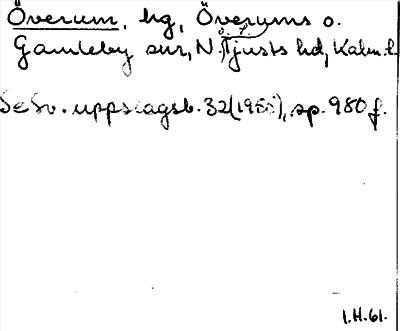 Överum, hg, Överums o.
Gamleby snr, N. Tjusts hd, Kalm. l.
Se Sv. uppslagsb. 32 (1955), sp. 980 f.
1.H.61.